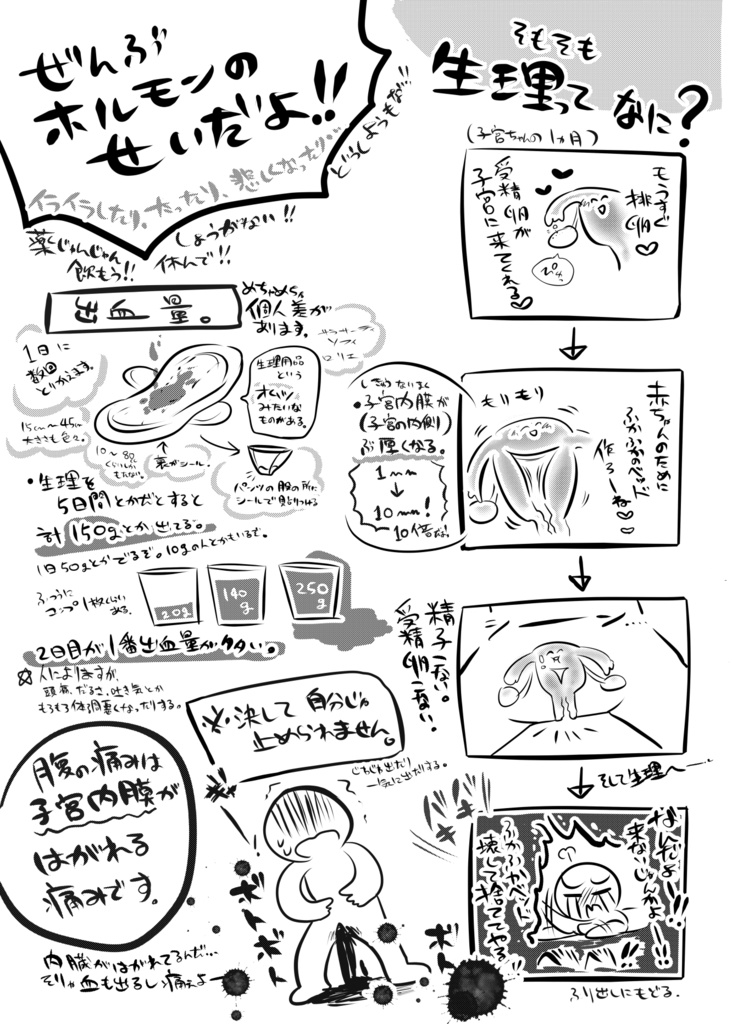 そもそも
生理って
なに?
(子宮ちゃんの1ヵ月)
もうすぐ
排卵♡
受精卵が
子宮に来てくれる♡
赤ちゃんのために
ふかふかのベッド
作ろーね♡♡
もりもり
しきゅうないまく
・子宮内膜が
(子宮の内側)
ぶ厚くなる。
1mm
↓
10mm!
10倍だ!
精子こない。
受精卵こない。
そして生理へ――
なんだよー!!
来ないじゃんかよー!!
ふかふかベット
壊して捨ててやる
バキバキ
ふり出しにもどる。
ぜんぶ
ホルモンの
せいだよ!!
イライラしたり、だったり、悲しくなったり…
どうしようもな…!!
しょうがない!!
薬じゃんじゃん
飲もう!!
休んで!!
出血量。
めちゃめちゃ
個人差が
あります。
ソフィ
ロリエ
1日に
数回
とりかえます。
15cm〜45cm
大きさも色々。
生理用品
という
オムツ
みたいな
ものがある。
裏がシール。
パンツの股の所に
シールで貼りつける
・生理を
5日間とかだとすると
計150gとか出てる。
1日50gとかでるで。10gの人とかもいるで。
ふつうに
コップ1杯くらい
ある。
20g
140g
250g
2日目が1番出血量が多い。
☆人によりますが、
頭痛、だるさ、吐き気とか
もろもろ体調悪くなったりする。
※決して自分じゃ
止められません。
じわじわ出たり
一気に出たりする。
腹の痛みは
子宮内膜が
はがれる
痛みです。
ボトボト
ボト
内臓がはがれてるんだ…
そりゃ血も出るし痛えよー